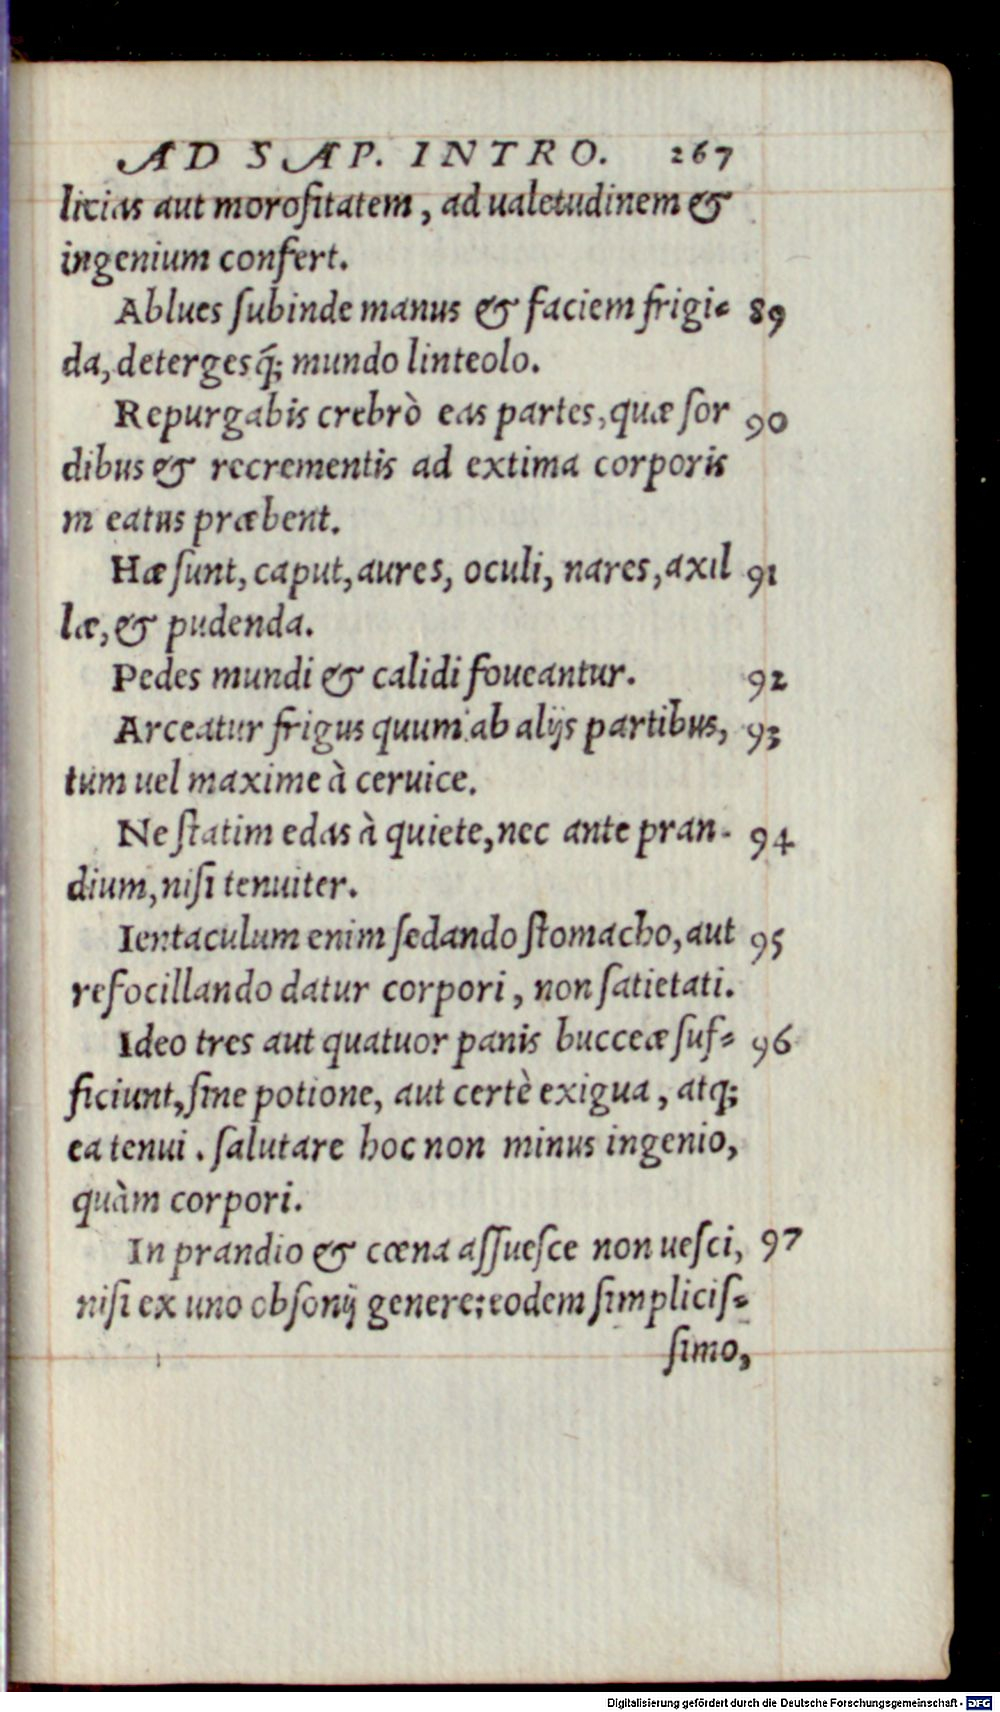 AD SAP. INTRO. 267
licias aut moroſitatem, ad ualetudinem &
ingenium confert.
Ablues ſubinde manus & faciem frigi= 89
da, detergesq́; mundo linteolo.
Repurgabis crebrò eas partes, quæ ſor 90
dibus & recrementis ad extima corporis
m eatus præbent.
Hæ ſunt, caput, aures, oculi, nares, axil 91
læ, & pudenda.
Pedes mundi & calidi foueantur. 92
Arceatur frigus quum ab alijs partibus, 93
tum uel maxime à ceruice.
Ne ſtatim edas à quiete, nec ante pran- 94
dium, niſi tenuiter.
Ientaculum enim ſedando ſtomacho, aut 95
refocillando datur corpori, non ſatietati.
Ideo tres aut quatuor panis bucceæ ſuf= 96
ficiunt, ſine potione, aut certè exigua, atq;
ea tenui. ſalutare hoc non minus ingenio,
quàm corpori.
In prandio & cœna aſſueſce non ueſci, 97
niſi ex uno obſonij genere: eodem ſimpliciſ=
ſimo,
Digitalisierung gefördert durch die Deutsche Forschungsgemeinschaft - DFG